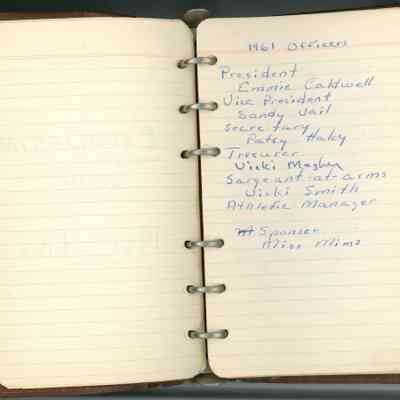 1961 Officers
President
Emmie Caldwell
Vice President
Sandy Vail
Secretary
Patsy Haby
Tresurer
Vicki
Sargeant-at-arms
Vicki Smith
Athletic Manager
Sponser
Miss Mims